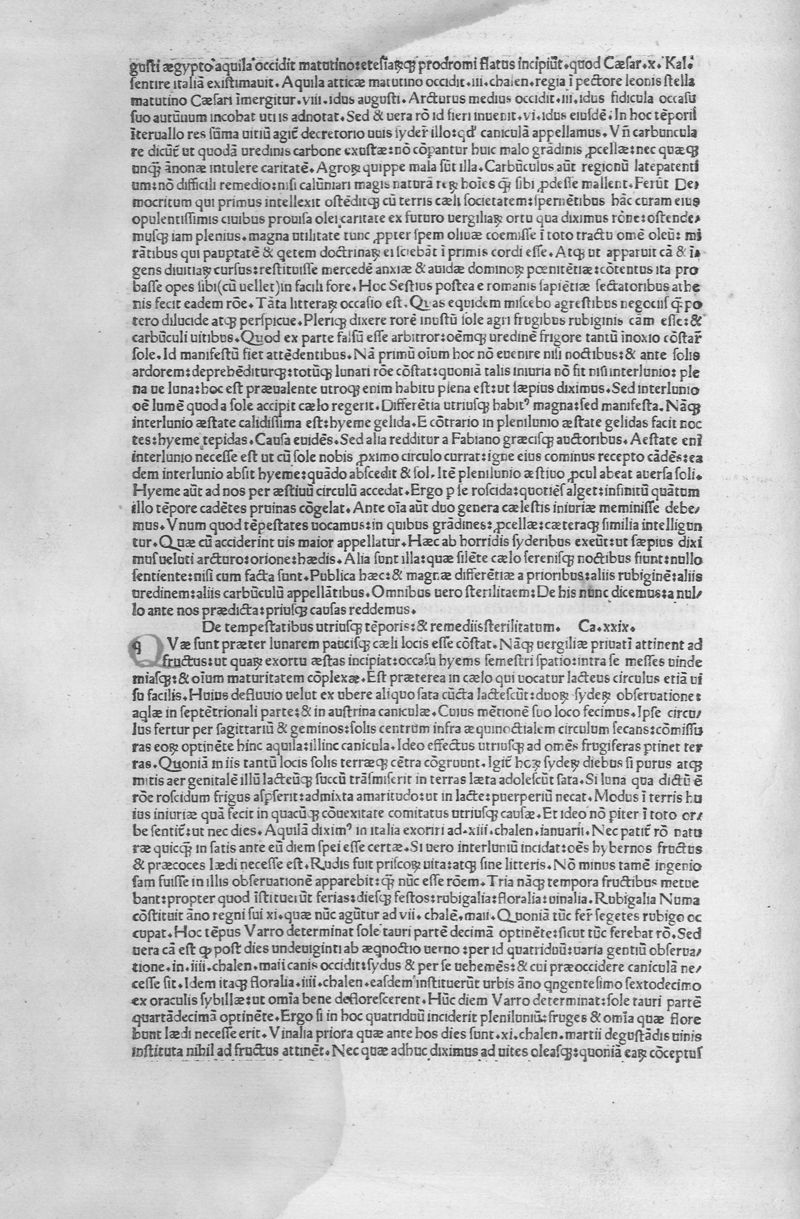 gusti ægypto aquila occidit matutino:etesiaꝝꝗ prodromi flatus incipiūt.quod Cæsar.x.Kal.
sentire italiā existimauit.Aquila atticæ matutino occidit.iii.chalen.regia ī pectore leonis stella
matutino Cæsari īmergitur.viii.idus augusti.Arcturus medius occidit.iii.idus fidicula occasu
suo autūnum incohat ut is adnotat.Sed & uera rō id fieri inuenit.vi.idus eiusdē.In hoc tēporis
īteruallo res sūma uitiū agit̄ decretorio uuis syder̄ illo:qd' caniculā appellamus.Vn̄ carbuncula
re dicūt̄ ut quodā uredinis carbone exustæ:nō cōpantur huic malo grādines ꝓcellæ:nec quæꝗ
unꝗ̄ ānonæ intulere caritatē.Agroꝝ quippe mala sūt illa.Carbūculos aūt regionū latepatenti
um:nō difficili remedio:nisi calūniari magis naturā reꝝ hoīes ꝗ̄ sibi ꝓdesse mallent.Ferūt De/
mocritum qui primus intellexit ostēditꝗ cū terris cæli societatem:spernētibus hāc curam eius
opulentissimis ciuibus prouisa olei caritate ex futuro uergiliaꝝ ortu qua diximus rōne:ostende/
musꝗ iam plenius.magna utilitate tunc ꝓpter spem oliuæ coemisse ī toto tractu omē oleū: mi
rātibus qui paupta�tē & ꝗetem doctrinaꝝ ei sciebāt ī primis cordi esse.Atꝗ ut apparuit cā & ī/
gens diuitiaꝝ cursus:restituisse mercedē anxiæ & auidæ dominoꝝ pœnitētiæ:cōtentus ita pro
basse opes sibi(cū uellet)in facili fore.Hoc Sestius postea e romanis sapiētiæ sectatoribus athe
nis fecit eadem rōe.Tāta litteraꝝ occasio est.Quas equidem miscebo agrestibus negociis ꝗ̄ po
tero dilucide atꝗ perspicue.Pleriꝗ dixere rorē inustū sole agri frugibus rubiginis cām esse:&
carbūculi uitibus.Quod ex parte falsū esse arbitror:oēmꝗ uredinē frigore tantū īnoxio cōstar̄
sole.Id manifestū fiet attēdentibus.Nā primū oīum hoc nō euenire nisi noctibus:& ante solis
ardorem:deprehēditurꝗ:totūꝗ lunari rōe cōstat:quoniā talis iniuria nō fit nisi interlunio: ple
na ue luna:hoc est præualente utroꝗ enim habitu plena est:ut sæpius diximus.Sed interlunio
oē lumē quod a sole accipit cælo regerit.Differētia utriusꝗ habit⁹ magna:sed manifesta.Nāꝗ
interlunio æstate calidissima est:hyeme gelida.E cōtrario in plenilunio æstate gelidas facit noc
tes:hyeme tepidas.Causa euidēs.Sed alia redditur a Fabiano græcisꝗ auctoribus.Aestate eni
interlunio necesse est ut cū sole nobis ꝓximo circulo currat:igne eius cominus recepto cādēs:ea
dem interlunio absit hyeme:quādo abscedit & sol.Itē plenilunio æstiuo ꝓcul abeat auersa soli.
Hyeme aūt ad nos per æstiuū circulū accedat.Ergo p se roscida:quotiēs alget:infinitū quātum
illo tēpore cadētes pruinas cōgelat.Ante oīa aūt duo genera cælestis iniuriæ meminisse debe/
mus.Vnum quod tēpestates uocamus:in quibus grādines:ꝓcellæ:cæteraꝗ similia intelligun
tur.Quæ cū acciderint uis maior appellatur.Hæc ab horridis syderibus exeūt:ut sæpius dixi
mus ueluti arcturo:orione:hædis.Alia sunt illa:quæ silēte cælo serenisꝗ noctibus fiunt:nullo
sentiente:nisi cum facta sunt.Publica hæc:& magnæ differētiæ a prioribus:aliis rubiginē:aliis
uredinem:aliis carbūculū appellātibus.Omnibus uero sterilitaem:De his nunc dicemus:a nul/
lo ante nos prædicta:priusꝗ causas reddemus.
De tempestatibus utriusꝗ tēporis:& remediis sterilitatum. Ca.xxix.
qVæ sunt præter lunarem paucisꝗ cæli locis esse cōstat.Nāꝗ uergiliæ priuati attinent ad
fructus:ut quaꝝ exortu æstas incipiat:occasu hyems semestri spatio:intra se messes uinde
miasꝗ:& oīum maturitatem cōplexæ.Est præterea in cælo qui uocatur lacteus circulus etiā ui
su facilis.Huius defluuio uelut ex ubere aliquo sata cūcta lactescūt:duoꝝ sydeꝝ obseruatione:
aqlæ in septētrionali parte:& in austrina caniculæ.Cuius mētionē suo loco fecimus.Ipse circu/
lus fertur per sagittariū & geminos:solis centrum infra æquinoctialem circulum secans:cōmissu
ras eoꝝ optinēte hinc aquila:illinc canicula.Ideo effectus utriusꝗ ad omēs frugiferas ptinet ter
ras.Quoniā in iis tantū locis solis terræꝗ cētra cōgruunt.Igit̄ hoꝝ sydeꝝ diebus si purus atꝗ
mitis aer genitalē illū lacteūꝗ succū trāsmiserit in terras læta adolescūt sata.Si luna qua dictū ē
rōe roscidum frigus aspserit:admixta amaritudo:ut in lacte:puerperiū necat.Modus ī terris hu
ius iniuriæ quā fecit in quacūꝗ cōuexitate comitatus utriusꝗ causæ.Et ideo nō piter ī toto or/
be sentit̄:ut nec dies.Aquilā dixim⁹ in italia exoriri ad.xiii.chalen.ianuarii.Nec patit̄ rō natu
ræ quicꝗ̄ in satis ante eū diem spei esse certæ.Si uero interluniū incidat:oēs hybernos fructus
& præcoces lædi necesse est.Rudis fuit priscoꝝ uita:atꝗ sine litteris.Nō minus tamē ingenio
sam fuisse in illis obseruationē apparebit:ꝗ̄ nūc esse rōem.Tria nāꝗ tempora fructibus metue
bant:propter quod īstituerūt ferias:diesꝗ festos:rubigalia:floralia:uinalia.Rubigalia Numa
cōstituit āno regni sui xi.quæ nūc agūtur ad vii.chalē.maii.Quoniā tūc fer̄ segetes rubigo oc
cupat.Hoc tēpus Varro determinat sole tauri partē decimā optinēte:sicut tūc ferebat rō.Sed
uera cā est ꝙ post dies undeuiginti ab æqnoctio uerno:per id quatriduū:uaria gentiū obserua/
tione.in.iiii.chalen.maii canis occidit:sydus & per se uehemēs:& cui præoccidere caniculā ne/
cesse sit.Idem itaꝗ floralia.iiii.chalen.easdem instituerūt urbis āno qngentesimo sextodecimo
ex oraculis sybillæ:ut omīa bene deflorescerent.Hūc diem Varro determinat:sole tauri partē
quartādecimā optinēte.Ergo si in hoc quatriduū inciderit pleniluniū:fruges & omīa quæ flore
bunt lædi necesse erit.Vinalia priora quæ ante hos dies sunt.xi.chalen.martii degustādis uinis
instituta nihil ad fructus attinēt.Nec quæ adhuc diximus ad uites oleasꝗ:quoniā eaꝝ cōceptus